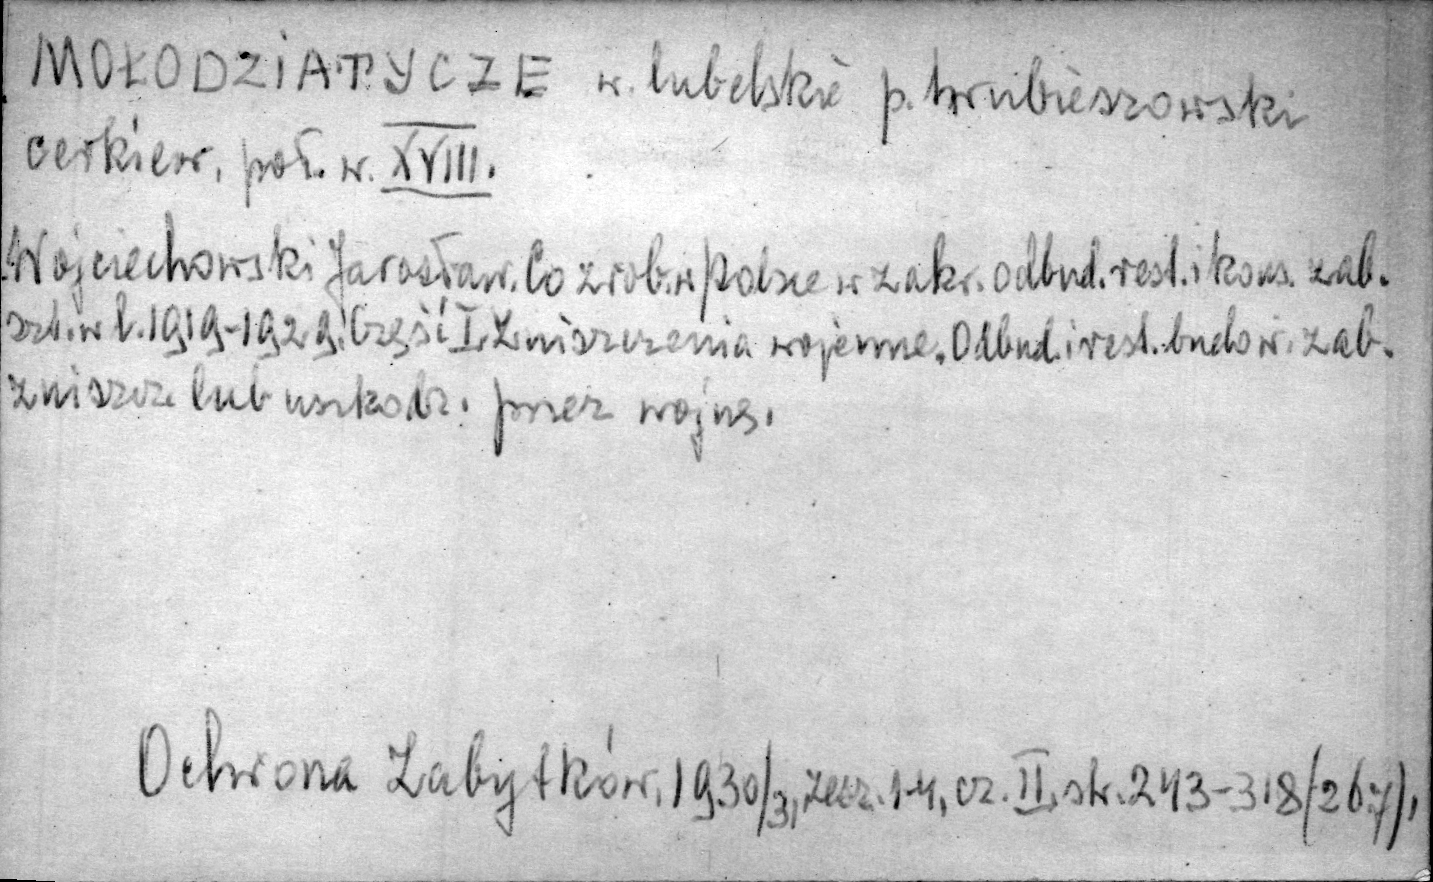 MOŁODZIATYCZE w. lubelskie p. hrubieszowski
cerkiew, poł. w. XVIII.
Wojciechowski Jarosław. Co zrob. w Polsce w zakr. odbud. rest. i kons. zab.
szt. w l. 1919-1929. Część I. Zniszczenia wojenne. Odbud. i rest. budow. zab.
zniszcz lub uszkodz. przez wojnę.
Ochrona Zabytków, 1930/31, zesz. 1-4, cz. II, str. 243-318 (267),